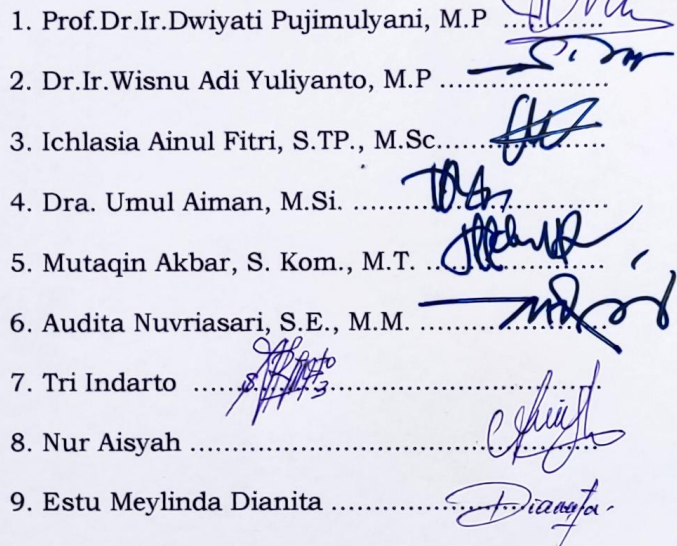 1. Prof.Dr.Ir.Dwiyati Pujimulyani, M.P ..............
2. Dr.Ir.Wisnu Adi Yuliyanto, M.P ......................
3. Ichlasia Ainul Fitri, S.TP., M.Sc......................
4. Dra. Umul Aiman, M.Si. .................................
5. Mutaqin Akbar, S. Kom., M.T. .......................
6. Audita Nuvriasari, S.E., M.M. ........................
7. Tri Indarto ......................................................
8. Nur Aisyah .....................................................
9. Estu Meylinda Dianita .................................... Dianita.